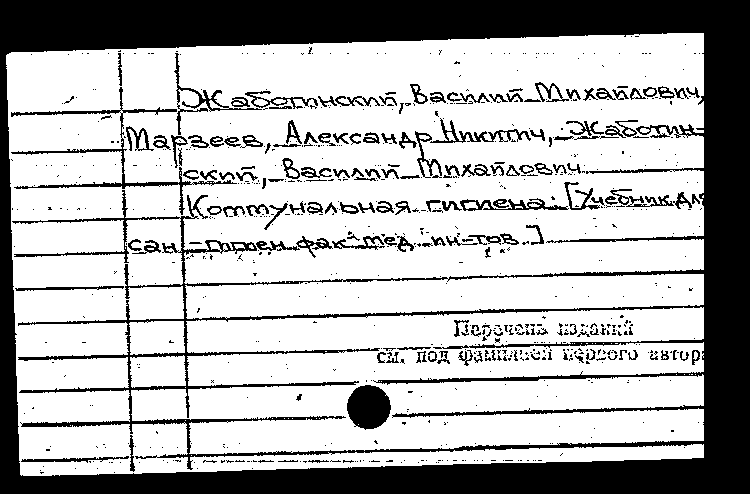 Жаботинский, Василий Михайлович,
Марзеев, Александр Никитич, Жаботин-
ский, Василий Михайлович
Коммунальная гигиена: [Учебник для
сан.-гигиен. фак. мед. ин-тов]
Перечень изданий
см. под фамилией первого автора